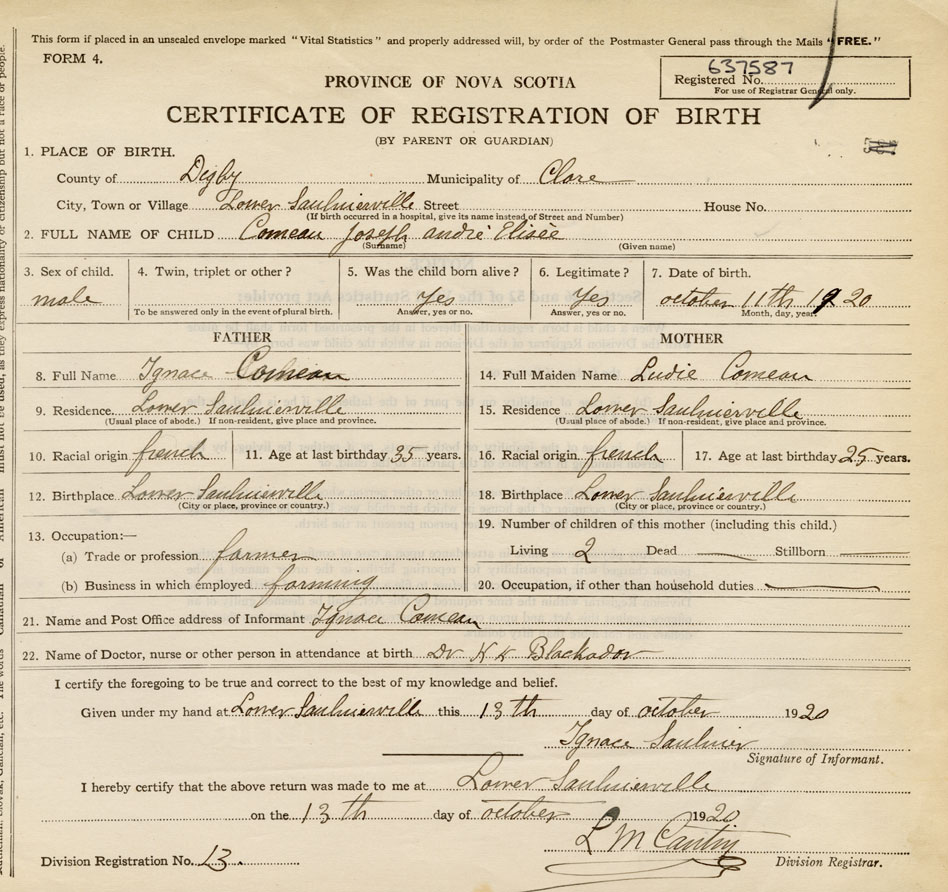 This form if placed in an unsealed envelope marked "Vital Statistics" and properly addressed will, by order of the Postmaster General pass through the Mails "FREE."
FORM 4.
637587
Registered No.
For use of Registrar General only.
PROVINCE OF NOVA SCOTIA
CERTIFICATE OF REGISTRATION OF BIRTH
(BY PARENT OR GUARDIAN)
1. PLACE OF BIRTH.
County of Digby Municipality of Clare
City, Town or Village Lower Saulnierville Street House No.
(If birth occurred in a hospital, give its name instead of Street and Number)
2. FULL NAME OF CHILD Comeau Joseph andré Elisée
(Surname) (Given name)
3. Sex of child. 4. Twin, triplet or other? 5. Was the child born alive? 6. Legitimate? 7. Date of birth.
male Yes Yes october 11th 1920
To be answered only in the event of plural birth. Answer, yes or no. Answer, yes or no. Month, day, year.
FATHER MOTHER
8. Full Name Ignace Comeau 14. Full Maiden Name Ludie Comeau
9. Residence. Lower Saulnierville 15. Residence Lower Saulnierville
(Usual place of abode.) If non-resident, give place and province. (Usual place of abode.) If non-resident, give place and province.
10. Racial origin french 11. Age at last birthday 35 years. 16. Racial origin french 17. Age at last birthday 25 years.
12. Birthplace Lower Saulnierville 18. Birthplace Lower Saulnierville
(City or place, province or country.) (City or place, province or country.)
13. Occupation:— 19. Number of children of this mother (including this child.)
(a) Trade or profession farmer Living 2 Dead — Stillborn —
(b) Business in which employed farming 20. Occupation, if other than household duties —
21. Name and Post Office address of Informant Ignace Comeau
22. Name of Doctor, nurse or other person in attendance at birth Dr
I certify the foregoing to be true and correct to the best of my knowledge and belief.
Given under my hand at Lower Saulnierville this 13th day of october 1920
Ignace Saulnier
Signature of Informant.
I hereby certify that the above return was made to me at Lower Saulnierville
on the 13th day of october 1920
L M
Division Registration No. 13. Division Registrar.